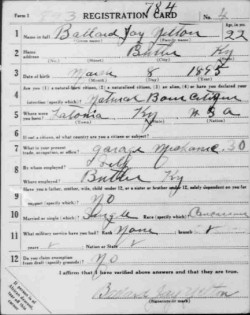 784
Form 1 REGISTRATION CARD No. 4
1 Name in full Ballard Jay Nelton Age, in yrs. 22
2 Home address Butler Ky
3 Date of birth March 8 1895
(Month) (Day) (Year)
4 Are you (1) a natural-born citizen, (2) a naturalized citizen, (3) an alien, (4) or have you declared your
intention (specify which)? Natural Born Citizen
5 Where were you born? Latonia Ky
6 If not a citizen, of what country are you a citizen or subject?
7 What is your present trade, occupation, or office? garage Mechanic
8 By whom employed? self
Where employed? Butler Ky
9 Have you a father, mother, wife, child under 12, or a sister or brother under 12, solely dependent on you for
support (specify which)? NO
10 Married or single (which)? Single Race (specify which)? Caucasian
11 What military service have you had? Rank None branch
years Nation or State
12 Do you claim exemption from draft (specify grounds)? NO
I affirm that I have verified above answers and that they are true.
Ballard Jay Nelton
(Signature or mark)